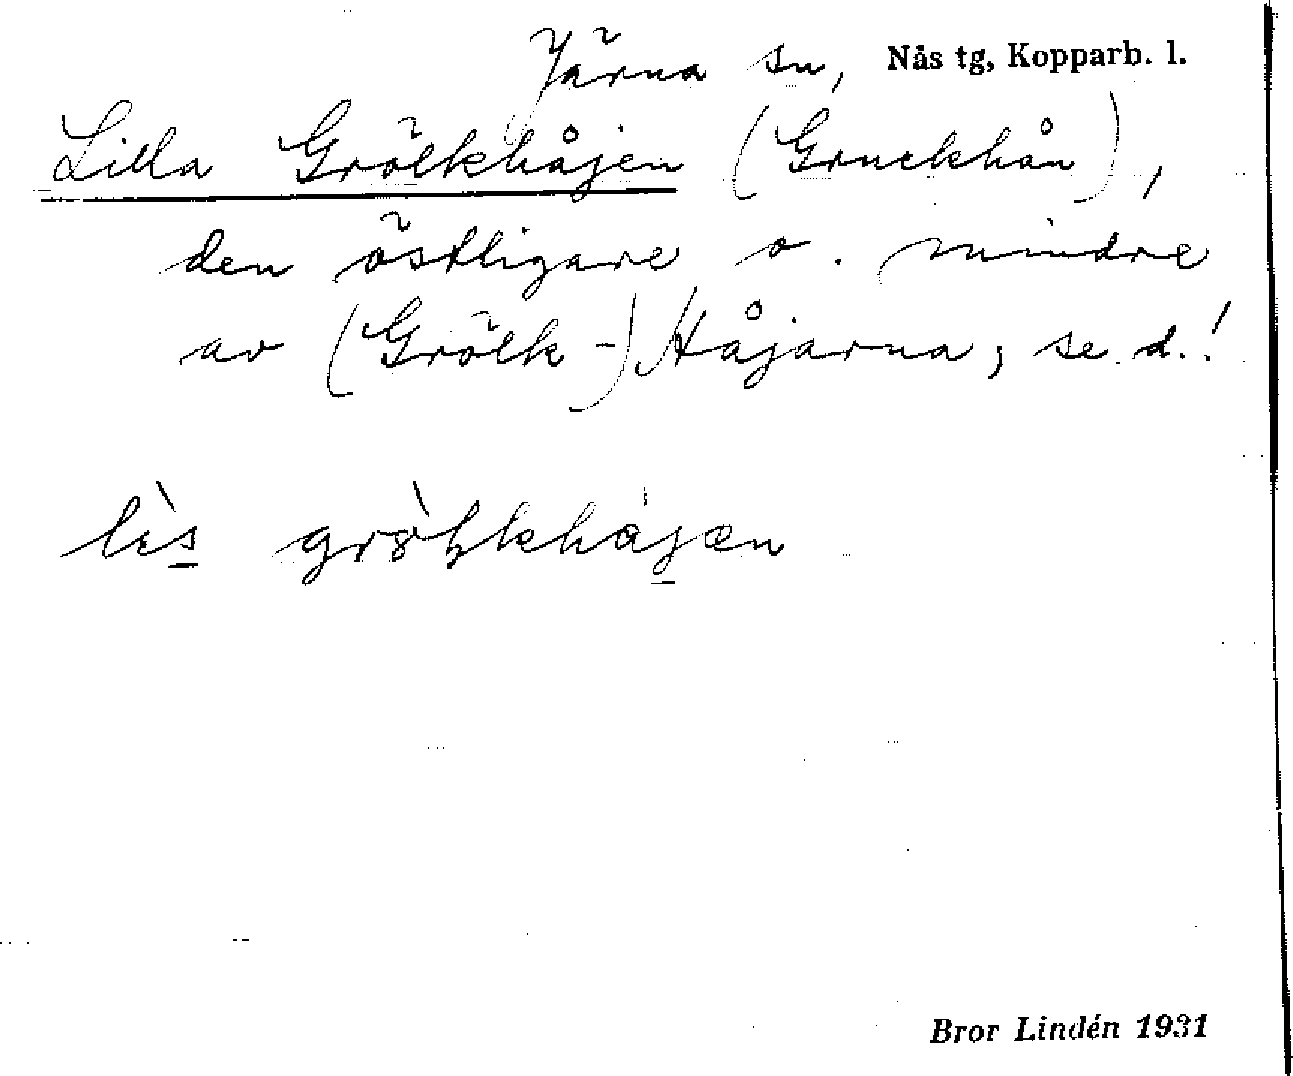 Järna sn, Nås tg, Kopparb. l.
Lilla Grölkhåjen (Gruckhån),
den östligare o. mindre
av (Grölk-)Håjarna; se d.!
lìs grò̀lkhåjæn
Bror Lindén 1931